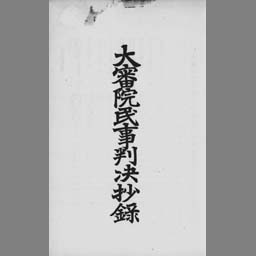 大審院民事判決抄錄